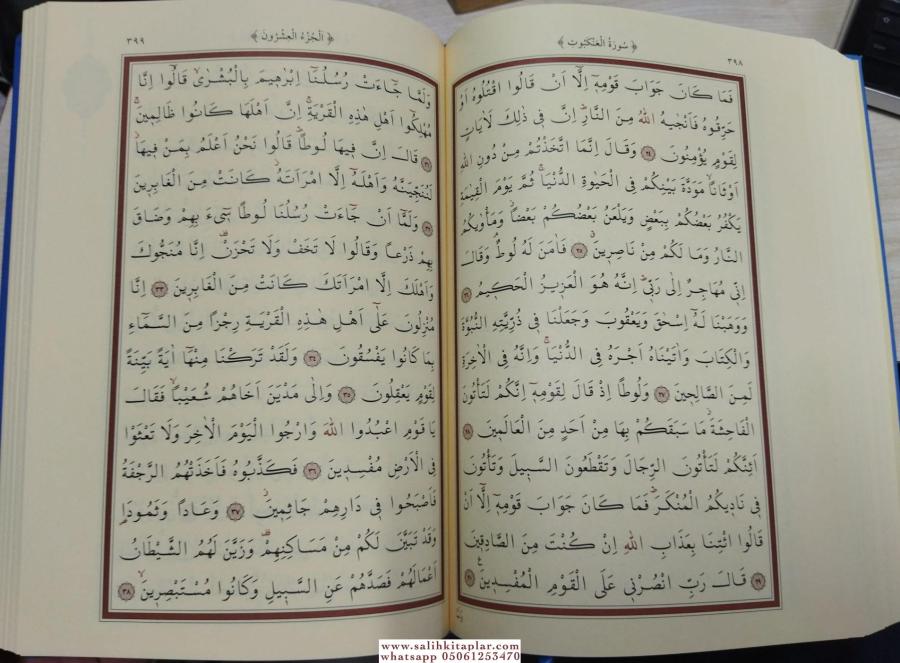 ﴿ سُورَةُ الْعَنْكَبُوتِ ﴾
٣٩٨
فَمَا كَانَ جَوَابَ قَوْمِهِٓ اِلَّٓا اَنْ قَالُوا اقْتُلُوهُ اَوْ
حَرِّقُوهُ فَاَنْجٰيهُ اللّٰهُ مِنَ النَّارِۜ اِنَّ فٖي ذٰلِكَ لَاٰيَاتٍ
لِقَوْمٍ يُؤْمِنُونَ ﴿٢٤﴾ وَقَالَ اِنَّمَا اتَّخَذْتُمْ مِنْ دُونِ اللّٰهِ
اَوْثَانًاۙ مَوَدَّةَ بَيْنِكُمْ فِي الْحَيٰوةِ الدُّنْيَاۚ ثُمَّ يَوْمَ الْقِيٰمَةِ
يَكْفُرُ بَعْضُكُمْ بِبَعْضٍ وَيَلْعَنُ بَعْضُكُمْ بَعْضًاۘ وَمَأْوٰيكُمُ
النَّارُ وَمَا لَكُمْ مِنْ نَاصِرٖينَۗ ﴿٢٥﴾ فَاٰمَنَ لَهُ لُوطٌۢ وَقَالَ
اِنّٖي مُهَاجِرٌ اِلٰى رَبّٖيۜ اِنَّهُ هُوَ الْعَزٖيزُ الْحَكٖيمُ ﴿٢٦﴾
وَوَهَبْنَا لَهُٓ اِسْحٰقَ وَيَعْقُوبَ وَجَعَلْنَا فٖي ذُرِّيَّتِهِ النُّبُوَّةَ
وَالْكِتَابَ وَاٰتَيْنَاهُ اَجْرَهُ فِي الدُّنْيَاۚ وَاِنَّهُ فِي الْاٰخِرَةِ
لَمِنَ الصَّالِحٖينَ ﴿٢٧﴾ وَلُوطًا اِذْ قَالَ لِقَوْمِهٖٓ اِنَّكُمْ لَتَأْتُونَ
الْفَاحِشَةَۘ مَا سَبَقَكُمْ بِهَا مِنْ اَحَدٍ مِنَ الْعَالَمٖينَ ﴿٢٨﴾
اَئِنَّكُمْ لَتَأْتُونَ الرِّجَالَ وَتَقْطَعُونَ السَّبٖيلَ وَتَأْتُونَ
فٖي نَادٖيكُمُ الْمُنْكَرَۜ فَمَا كَانَ جَوَابَ قَوْمِهٖٓ اِلَّٓا اَنْ
قَالُوا ائْتِنَا بِعَذَابِ اللّٰهِ اِنْ كُنْتَ مِنَ الصَّادِقٖينَ
﴿٢٩﴾ قَالَ رَبِّ انْصُرْنٖي عَلَى الْقَوْمِ الْمُفْسِدٖينَ۟ ﴿٣٠﴾
٣٩٩
﴿ اَلْجُزْءُ الْعِشْرُونَ ﴾
وَلَمَّا جَٓاءَتْ رُسُلُنَٓا اِبْرٰهٖيمَ بِالْبُشْرٰىۙ قَالُٓوا اِنَّا
مُهْلِكُٓوا اَهْلِ هٰذِهِ الْقَرْيَةِۚ اِنَّ اَهْلَهَا كَانُوا ظَالِمٖينَۚ
﴿٣١﴾ قَالَ اِنَّ فٖيهَا لُوطًاۜ قَالُوا نَحْنُ اَعْلَمُ بِمَنْ فٖيهَاۘ
لَنُنَجِّيَنَّهُ وَاَهْلَهُٓ اِلَّا امْرَاَتَهُۘ كَانَتْ مِنَ الْغَابِرٖينَ
﴿٣٢﴾ وَلَمَّٓا اَنْ جَٓاءَتْ رُسُلُنَا لُوطًا سٖٓيءَ بِهِمْ وَضَاقَ
بِهِمْ ذَرْعًا وَقَالُوا لَا تَخَفْ وَلَا تَحْزَنْ۠ اِنَّا مُنَجُّوكَ
وَاَهْلَكَ اِلَّا امْرَاَتَكَ كَانَتْ مِنَ الْغَابِرٖينَ ﴿٣٣﴾ اِنَّا
مُنْزِلُونَ عَلٰٓى اَهْلِ هٰذِهِ الْقَرْيَةِ رِجْزًا مِنَ السَّمَٓاءِ
بِمَا كَانُوا يَفْسُقُونَ ﴿٣٤﴾ وَلَقَدْ تَرَكْنَا مِنْهَٓا اٰيَةً بَيِّنَةً
لِقَوْمٍ يَعْقِلُونَ ﴿٣٥﴾ وَاِلٰى مَدْيَنَ اَخَاهُمْ شُعَيْبًاۙ فَقَالَ
يَا قَوْمِ اعْبُدُوا اللّٰهَ وَارْجُوا الْيَوْمَ الْاٰخِرَ وَلَا تَعْثَوْا
فِي الْاَرْضِ مُفْسِدٖينَ ﴿٣٦﴾ فَكَذَّبُوهُ فَاَخَذَتْهُمُ الرَّجْفَةُ
فَاَصْبَحُوا فٖي دَارِهِمْ جَاثِمٖينَۘ ﴿٣٧﴾ وَعَادًا وَثَمُودَا۬
وَقَدْ تَبَيَّنَ لَكُمْ مِنْ مَسَاكِنِهِمْ۠ وَزَيَّنَ لَهُمُ الشَّيْطَانُ
اَعْمَالَهُمْ فَصَدَّهُمْ عَنِ السَّبٖيلِ وَكَانُوا مُسْتَبْصِرٖينَۙ ﴿٣٨﴾
www.salihkitaplar.com
whatsapp 05061253470